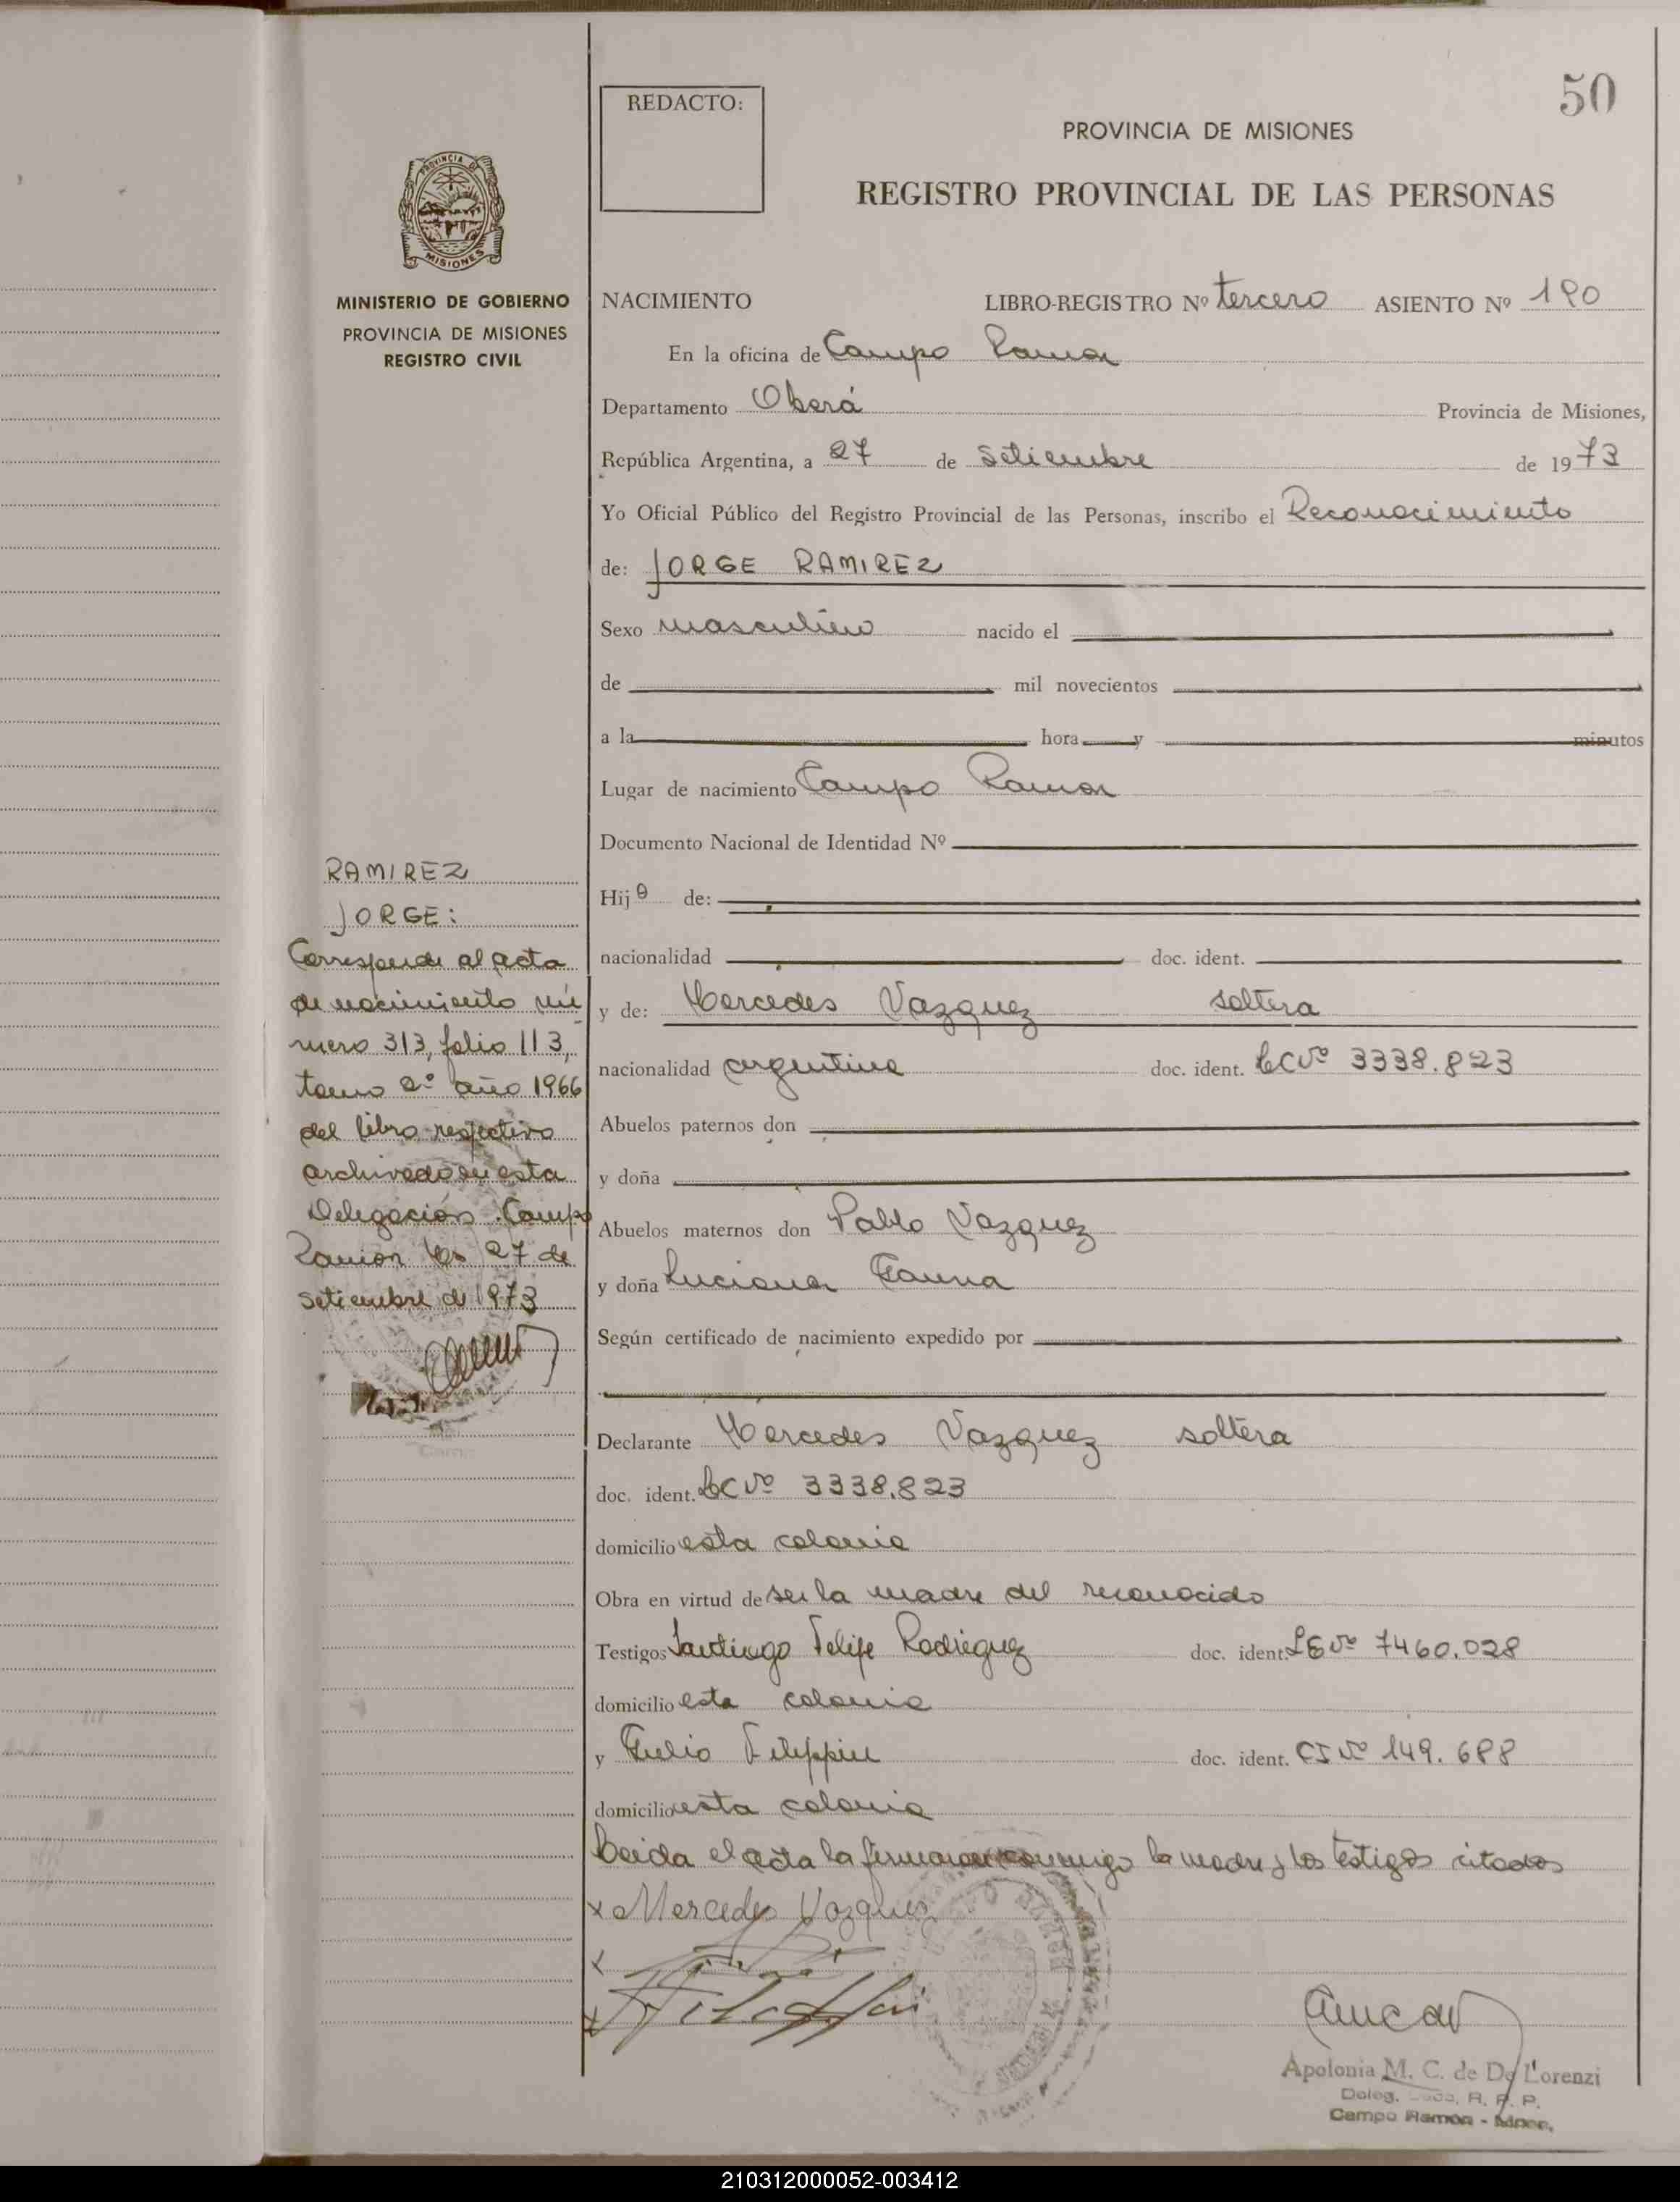 50
REDACTO:
PROVINCIA DE MISIONES
REGISTRO PROVINCIAL DE LAS PERSONAS
PROVINCIA DE
MISIONES
MINISTERIO DE GOBIERNO
PROVINCIA DE MISIONES
REGISTRO CIVIL
NACIMIENTO LIBRO-REGISTRO Nº tercero ASIENTO Nº 190
En la oficina de Campo Ramon
Departamento Oberá Provincia de Misiones,
República Argentina, a 27 de Setiembre de 1973
Yo Oficial Público del Registro Provincial de las Personas, inscribo el Reconocimiento
de: JORGE RAMIREZ
Sexo masculino nacido el
de mil novecientos
a la hora y minutos
Lugar de nacimiento Campo Ramon
Documento Nacional de Identidad Nº
Hijo de:
nacionalidad doc. ident.
y de: Mercedes Vazquez soltera
nacionalidad argentina doc. ident. LC Nº 3338.823
Abuelos paternos don
y doña
Abuelos maternos don Pablo Vazquez
y doña Luciana
Según certificado de nacimiento expedido por
Declarante Mercedes Vazquez soltera
doc. ident. LC Nº 3338.823
domicilio esta colonia
Obra en virtud de ser la madre del reconocido
Testigos Santiago Felipe Rodriguez doc. ident. LE Nº 7460.028
domicilio esta colonia
y Julio Filippin doc. ident. CI Nº 149.688
domicilio esta colonia
Leida el acta la firmaron conmigo la madre y los testigos citados
x Mercedes Vazques
x
x
Apolonia M. C. de De Lorenzi
Deleg. R. P. P.
Campo Ramon - Mnes.
RAMIREZ
JORGE:
Corresponde al acta
de nacimiento nú
mero 313, folio 113,
tomo 2º año 1966
del libro respectivo
archivado en esta
Delegación. Campo
Ramón 27 de
setiembre de 1973
210312000052-003412